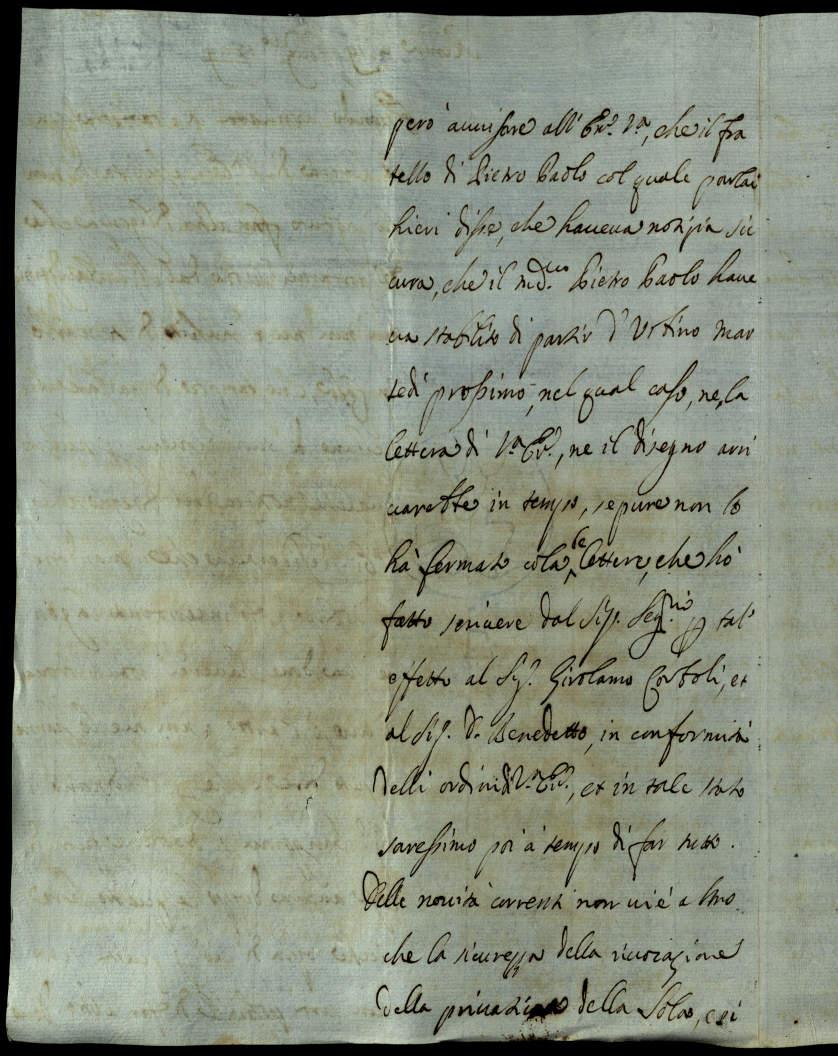 però auuisare all' Em.ª V.ª, che il fra
tello di Pietro Paolo col quale parlai
hieri disse, che haueua notizia sic
cura, che il md.mo Pietro Paolo haue
ua stabilito di partir d'Urbino mar
tedì prossimo, nel qual caso, ne, la
lettera di V.ª Em.ª, ne il disegno arri
uarebbe in tempo, se pure non lo
hà fermato cola le lettere, che hò
fatto scriuere dal Sig. Seg.rio p tal'
effetto al Sig.r Girolamo Corboli, et
al Sig. D. Benedetto, in conformità
delli ordini di V.ª Em.ª, et in tale stato
saressimo poi à tempo di far tutto.
Delle nouità correnti non ui é altro
che la sicurezza della riuocazione
della priuatiua della Sola, e si